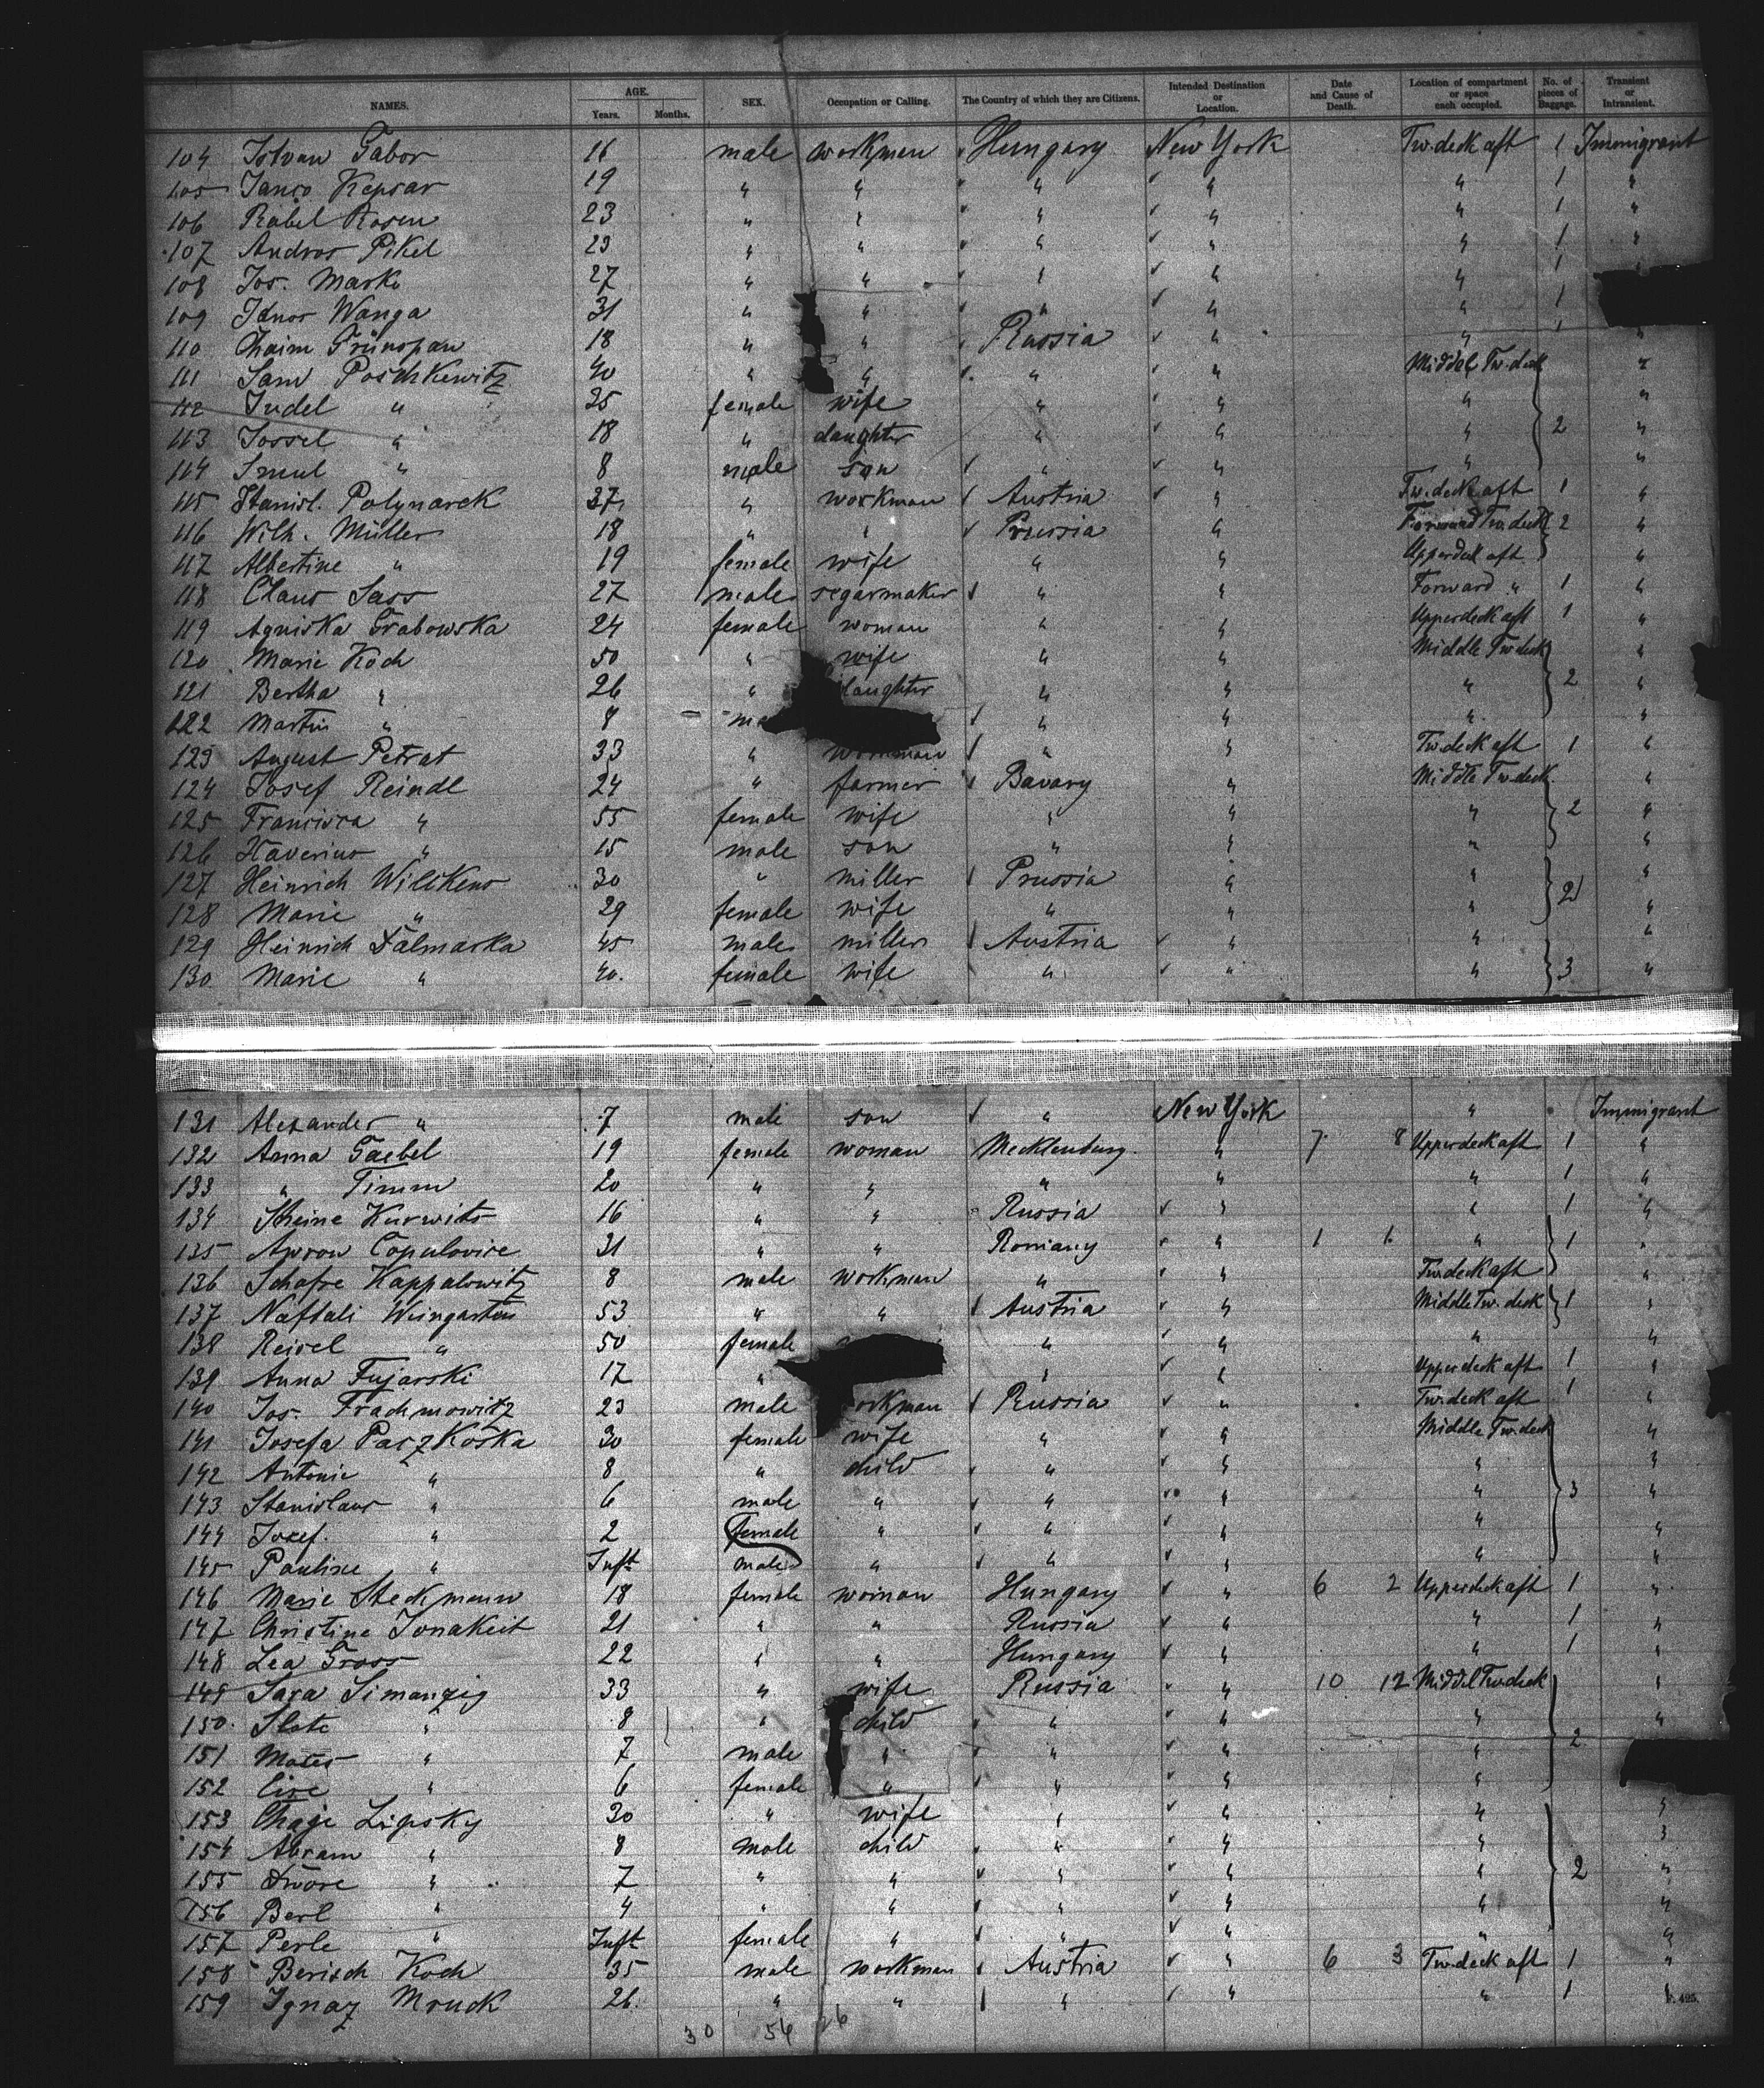 NAMES. AGE. Years. Months. SEX. Occupation or Calling. The Country of which they are Citizens. Intended Destination or Location. Date and Cause of Death. Location of compartment or space each occupied. No. of pieces of Baggage. Transient or Intransient.
104 Istvan Gabor 16 male workman Hungary New York Tw.deck aft 1 Immigrant
105 Janco Kepsar 19 " " " " " 1 "
106 Rabel Rosen 23 " " " " " 1 "
107 Andros Pikel 23 " " " " " 1 "
108 Jos. Marko 27 " " " " " 1
109 Janos Wanga 31 " " " " " 1
110 Chaim Grünspan 18 " " Russia " " 1 "
111 Sam Poschkewitz 40 " " " " Middel Tw.deck "
112 Judel " 35 female wife " " " "
113 Jossel " 18 " daughter " " " 2 "
114 Smul " 8 male son " " " "
115 Stanisl. Polynarek 37 " workman Austria " Tw.deck aft 1 "
116 Wilh. Müller 18 " " Prussia " Forward Tw.deck 2 "
117 Albertine " 19 female wife " " Upperdeck aft "
118 Claus Sass 27 male segarmaker " " Forward " 1 "
119 Agniska Grabowska 24 female woman " " Upperdeck aft 1 "
120 Marie Koch 50 " wife " " Middle Tw.deck "
121 Bertha " 26 " daughter " " " 2 "
122 Martin " 8 " " " "
123 August Petrat 33 " workman " " Tw.deck aft 1 "
124 Josef Reindl 24 " farmer Bavary " Middle Tw.deck "
125 Francisca " 55 female wife " " " 2 "
126 Xaverius " 15 male son " " " "
127 Heinrich Wilckens 30 " miller Prussia " " 2 "
128 Marie " 29 female wife " " " "
129 Heinrich Dalmarka 45 male miller Austria " " "
130 Marie " 40. female wife " " " 3 "
131 Alexander " 7 male son " New York " Immigrant
132 Anna Gaebel 19 female woman Mecklenburg. " 7 8 Upperdeck aft 1 "
133 " Timm 20 " " " " " 1 "
134 Scheine Kurwits 16 " " Russia " " 1 "
135 Awrow Copulovice 31 " " Romany " 1 " 1 "
136 Schafre Kappalowitz 8 male workman " " Tw.deck aft "
137 Naftali Weingarten 53 " " Austria " Middle Tw. deck 1 "
138 Reisel " 50 female " " " "
139 Anna Fujarski 17 " " " Upperdeck aft 1 "
140 Jos. Frachmowitz 23 male workman Russia " Tw.deck aft 1 "
141 Josefa Paczkoska 30 female wife " " Middle Tw.deck "
142 Antonie " 8 " child " " " "
143 Stanislaus " 6 male " " " " 3 "
144 Josef. " 2 female " " " " "
145 Pauline " Inft male " " " " "
146 Marie Steckmann 18 female woman Hungary " 6 2 Upperdeck aft 1 "
147 Christine Jonakeit 21 " " Russia " " 1 "
148 Lea Gross 22 " " Hungary " " 1 "
149 Sara Simanzig 33 " wife Russia " 10 12 Middel Tw.deck "
150. Slate " 8 " child " " " "
151 Mates " 7 male " " " " 2
152 Cise " 6 female " " " "
153 Chaje Lipsky 30 " wife " " " "
154 Abram " 8 male child " " " "
155 Dwore " 7 " " " " " 2 "
156 Berl " 4 " " " " " "
157 Perle " Inft female " " " " "
158 Berisch Koch 35 male workman Austria " 6 3 Tw.deck aft 1 "
159 Ignaz Mruck 26. " " " " " 1 "
30 54 26